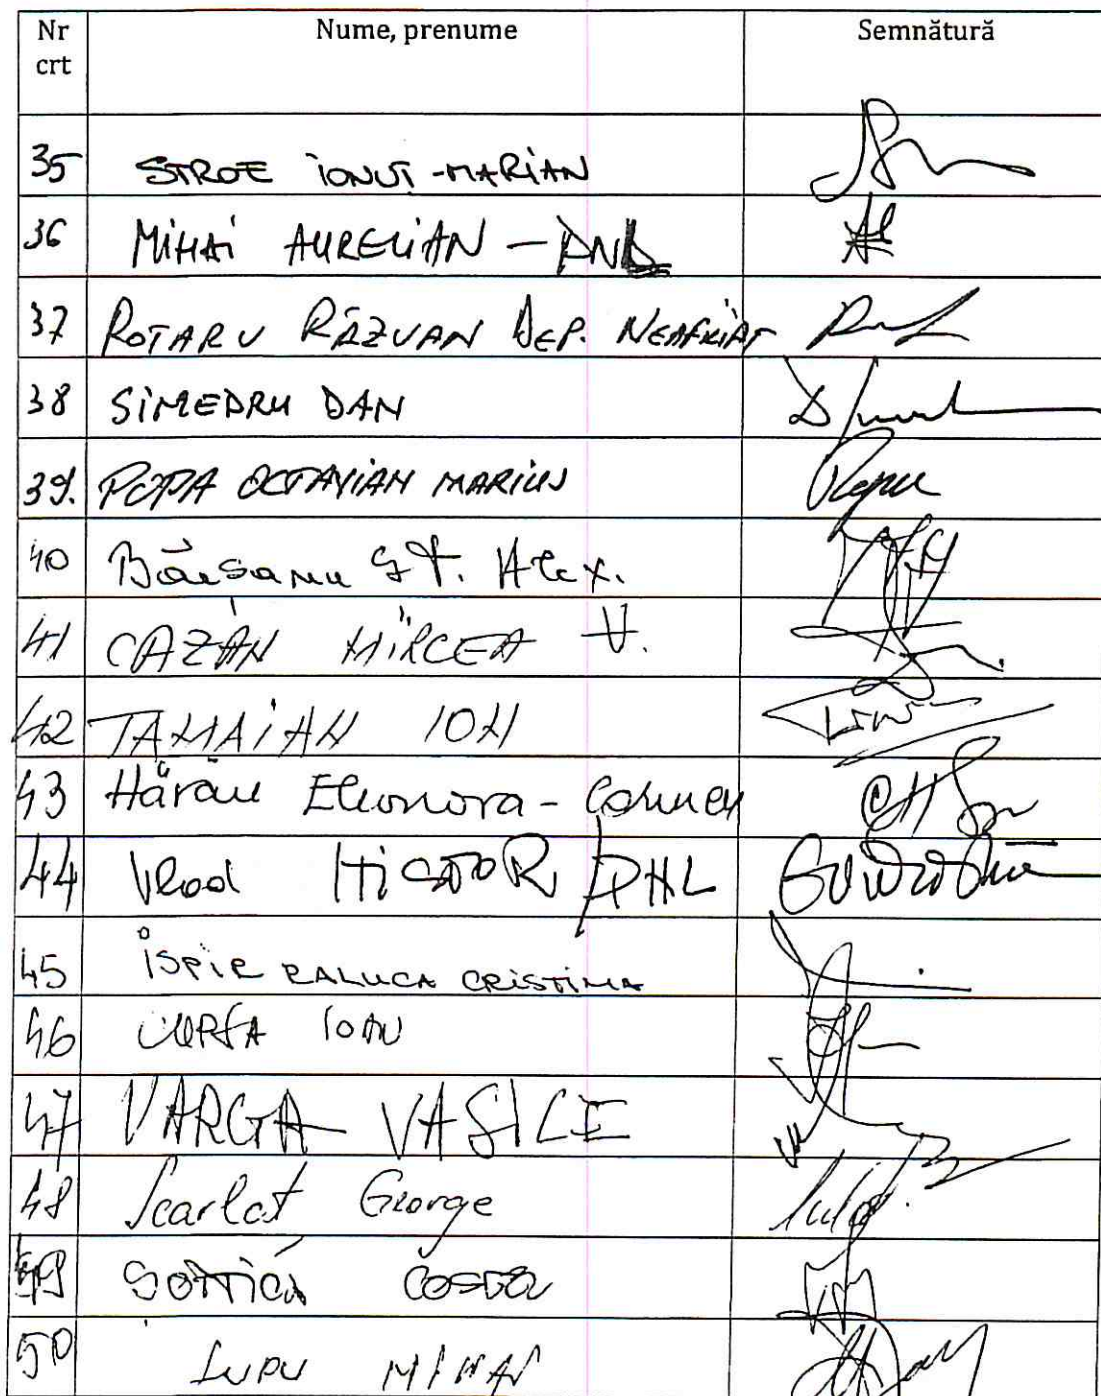 Nr crt Nume, prenume Semnătură
35 STROE IONUȚ-MARIAN
36 MIHAI AURELIAN - PNL
37 ROTARU RĂZVAN DEP. NEAFILIAT
38 SIMEDRU DAN
39. POPA OCTAVIAN MARIUS
40 Băișanu Șt. Alex.
41 CAZAN MIRCEA V.
42 TAMAIAN ION
43 Hărău Eleonora-Carmen
44 Vlad NISTOR PNL
45 ISPIR RALUCA CRISTINA
46 CUPȘA IOAN
47 VARGA VASILE
48 Scarlat George
49 ȘOPTICĂ COSTEL
50 LUPU MIHAI